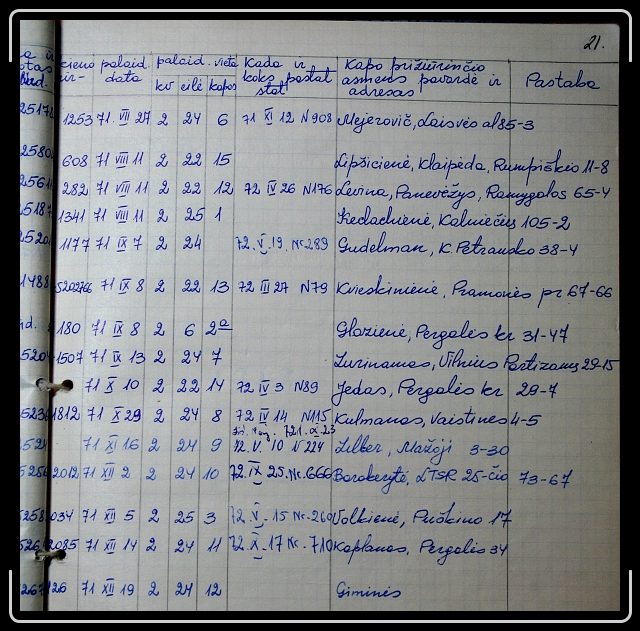 21.
cieno palaid. palaid. vieta Kada ir Kapo prižiūrinčio
data koks pastat asmens pavardė ir Pastaba
kv eilė kapas adresas
1253 71 VII 27 2 24 6 71 XI 12 N908 Mejerovič, Laisvės al 85-3
608 71 VIII 11 2 22 15 Lipšicienė, Klaipėda, Rumpiškio 11-8
282 71 VIII 11 2 22 12 72 IV 26 N176 Levina, Panevėžys, Ramygalos 65-4
1341 71 VIII 11 2 25 1 105-2
1177 71 IX 7 2 24 72.V.19. Nr.289 Gudelman, K. Petrausko 38-4
71 IX 8 2 22 13 72 III 27 N79 Kvieskinienė, Pramonės pr 67-66
180 71 IX 8 2 6 2a Glazienė, Pergalės kr 31-47
1507 71 IX 13 2 24 7 Vilnius Partizanų 29-15
71 X 10 2 22 14 72 IV 3 N89 Jedas, Pergalės kr 29-7
1812 71 X 29 2 24 8 72 IV 14 N115 Kulmanas, Vaistinės 4-5
71 XI 16 2 24 9 72.V.10 N224 Zilber, Mažoji 3-30
2012 71 XII 2 2 24 10 72.IX.25. Nr.666 LTSR 25-čio 73-67
034 71 XII 5 2 25 3 72.V.15 Nr-260 Volkienė, Puškino 17
2085 71 XII 14 2 24 11 72.X.17 Nr.710 Kaplanas, Pergalės 34
126 71 XII 19 2 24 12 Giminės